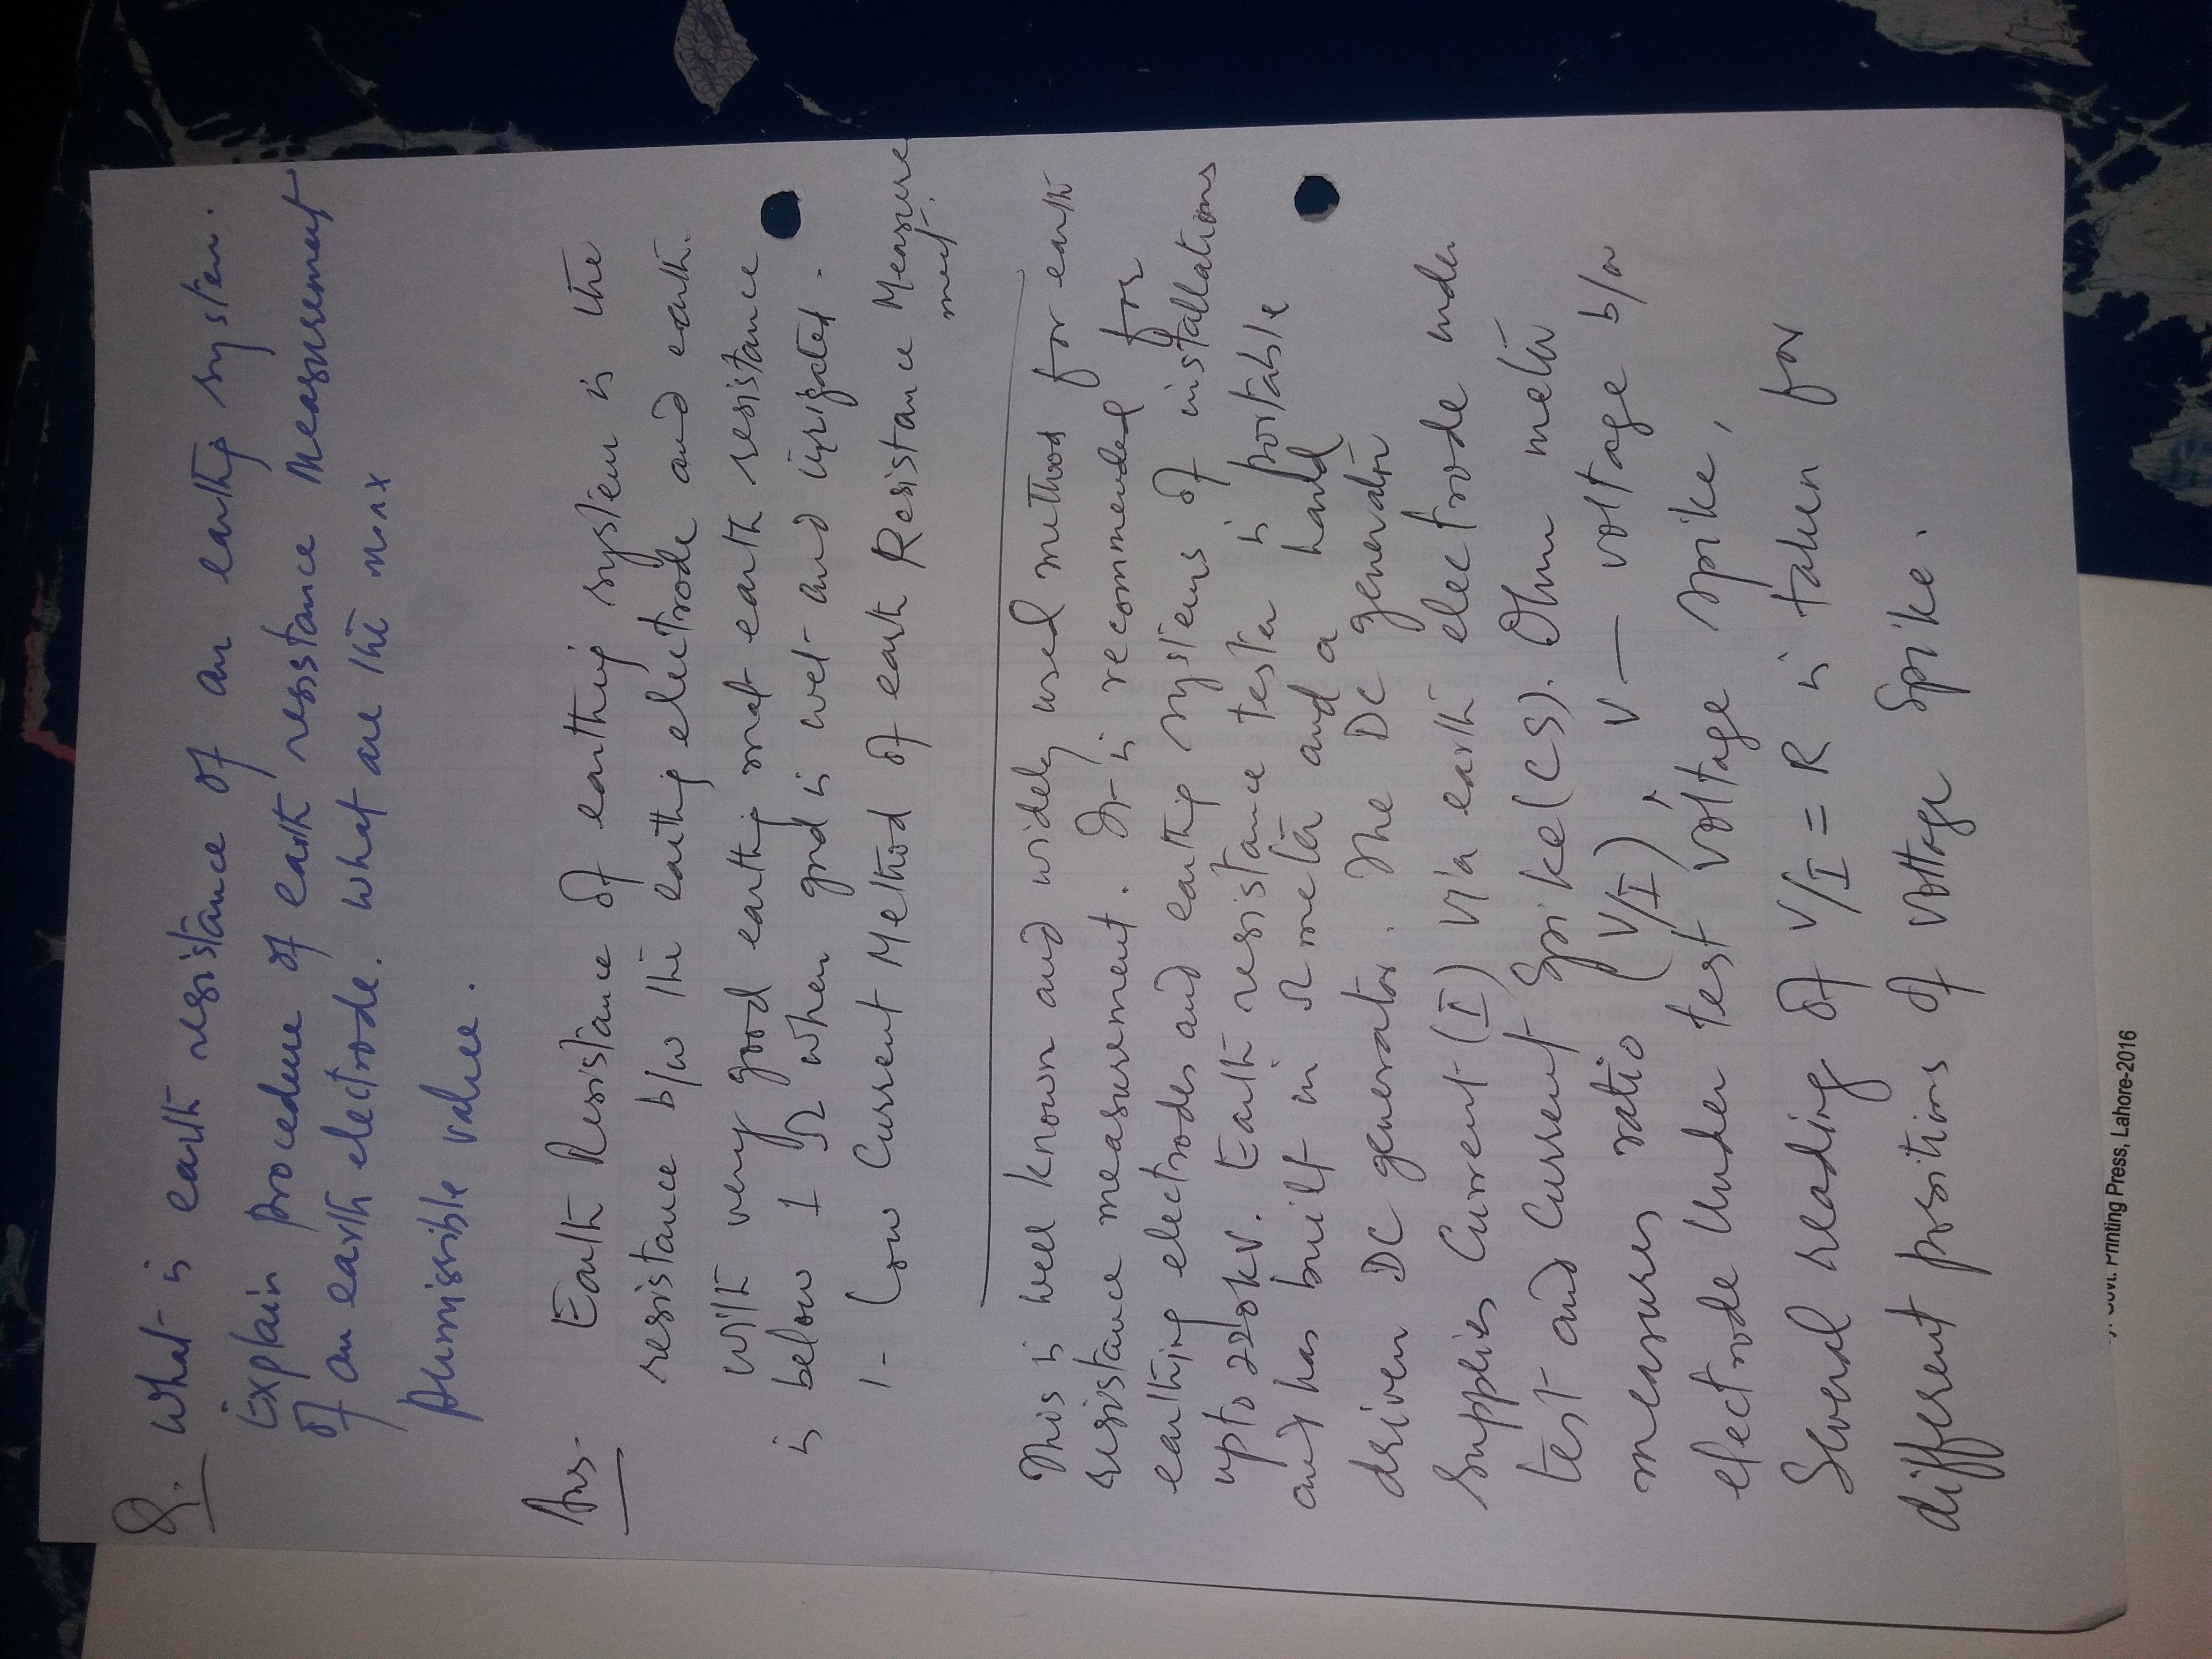 Q. What is earth resistance of an earthig system.
Explain procedure of earth resistance measurement
of an earth electrode. What are the max
Permissible value.
Ans- Earth Resistance of earthing system is the
resistance b/w the earthig electrode and earth.
with very good earthig mat earth resistance
is below 1 Ω when gnd is wet and irrigated.
1- Low Current Method of earth Resistance Measure
ment.
This is well known and widely used method for earth
resistance measurement. It is recommended for
earthing electrodes and earthig systems of installations
upto 220kV. Earth resistance tester is portable
and has built in Ω meter and a hand
driven DC generator. The DC generator
Supplies Current (I) via earth electrode under
test and Current Spike (CS). Ohm meter
measures ratio (V/I), V — voltage b/w
electrode Under test voltage spike,
Several reading of V/I = R is taken for
different positions of voltage Spike.
Govt. Printing Press, Lahore-2016